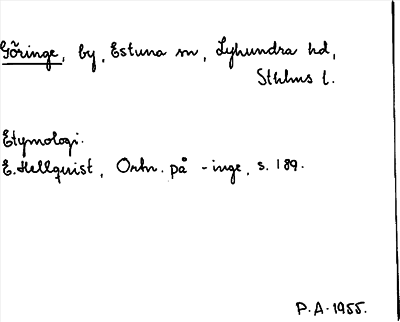 Göringe, by, Estuna sn, Lyhundra hd,
Sthlms l.
Etymologi.
E. Hellquist, Ortn. på -inge, s. 189.
P.A. 1955.